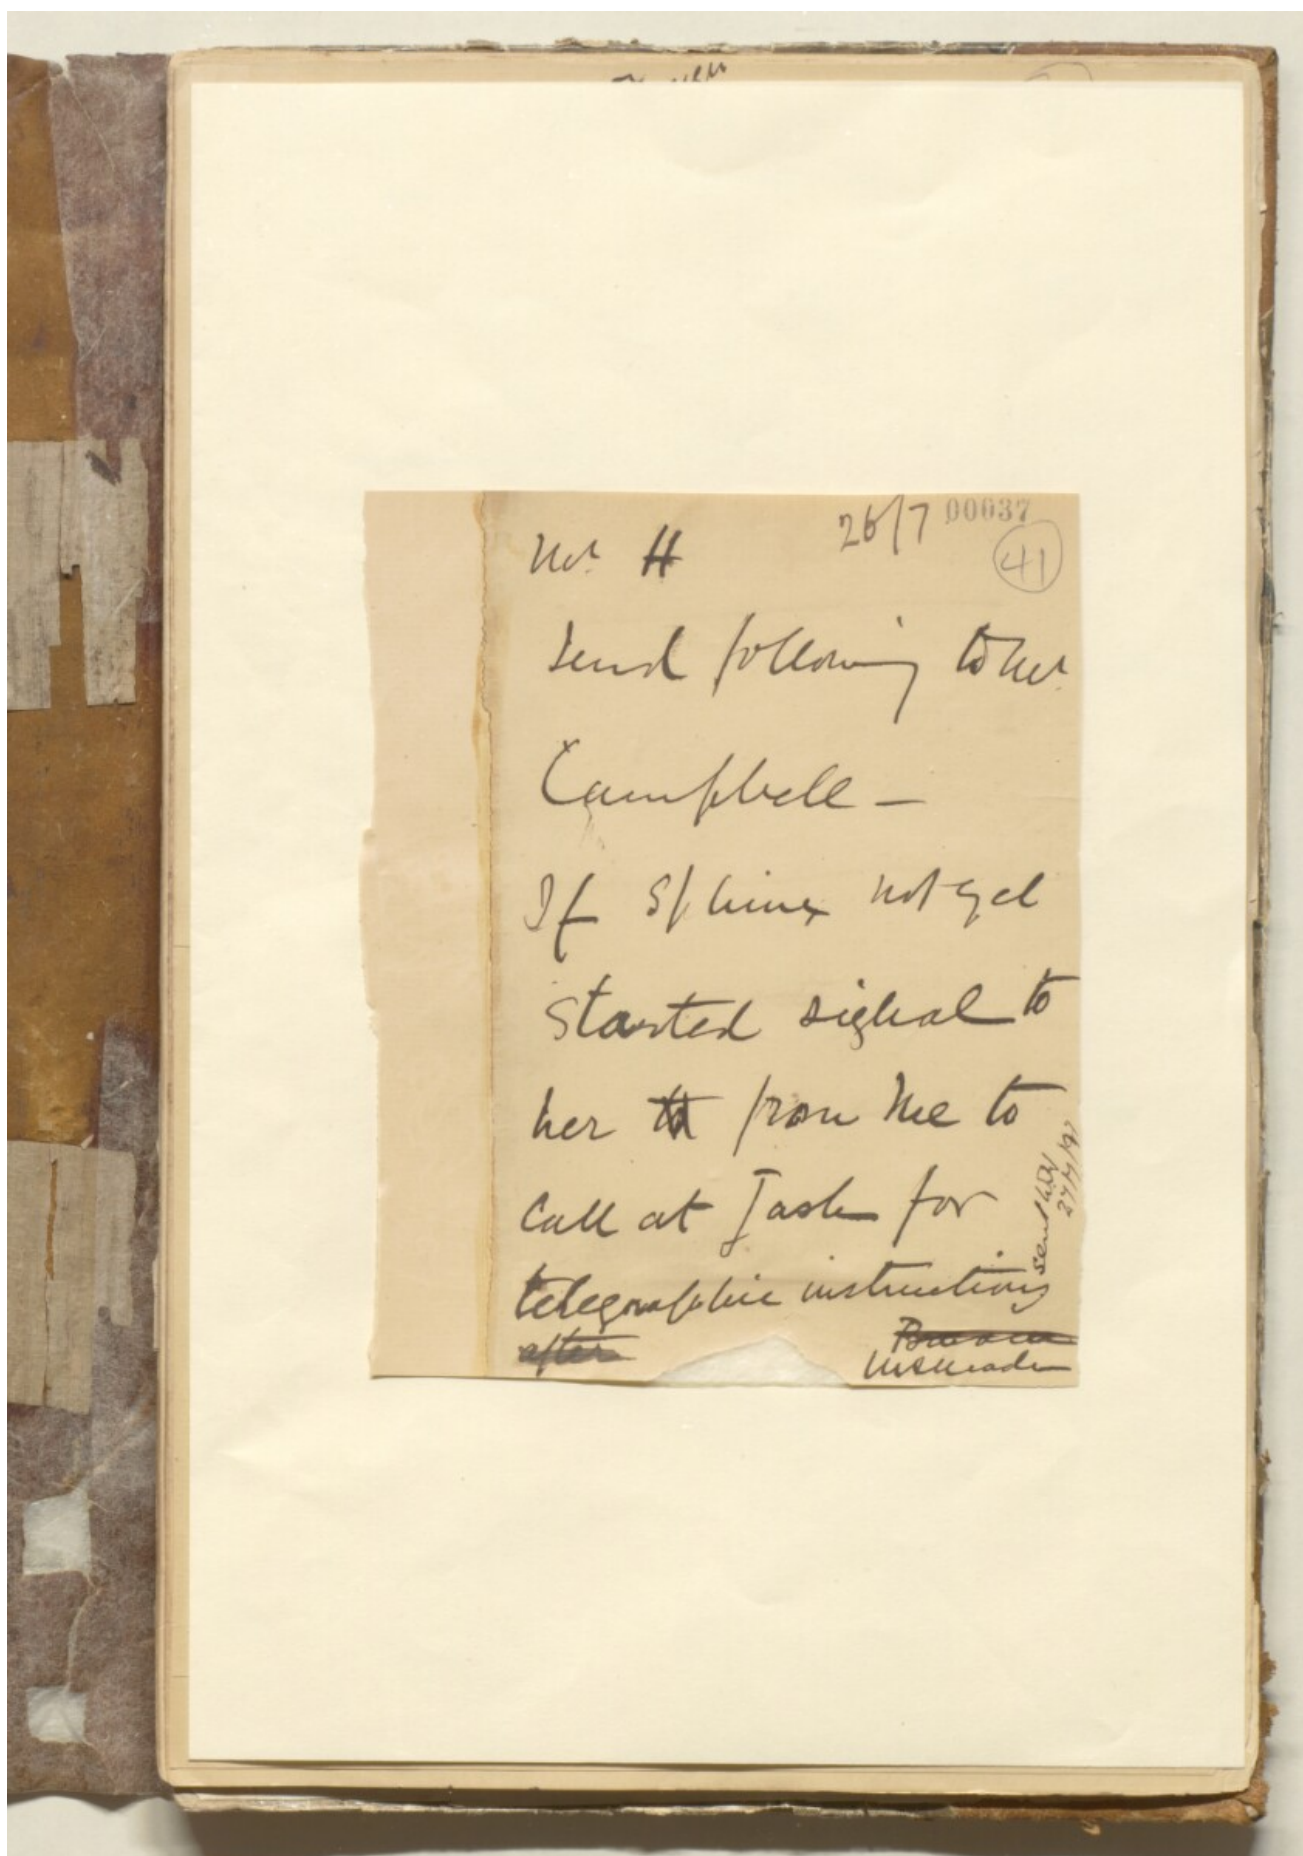 26/7 00037
41
Mr. H
Send following to Mr.
Campbell –
If Sphinx not yet
started signal to
her from me to
call at Jask for
telegraphic instructions
after
MSMeade
sent
27/7/97